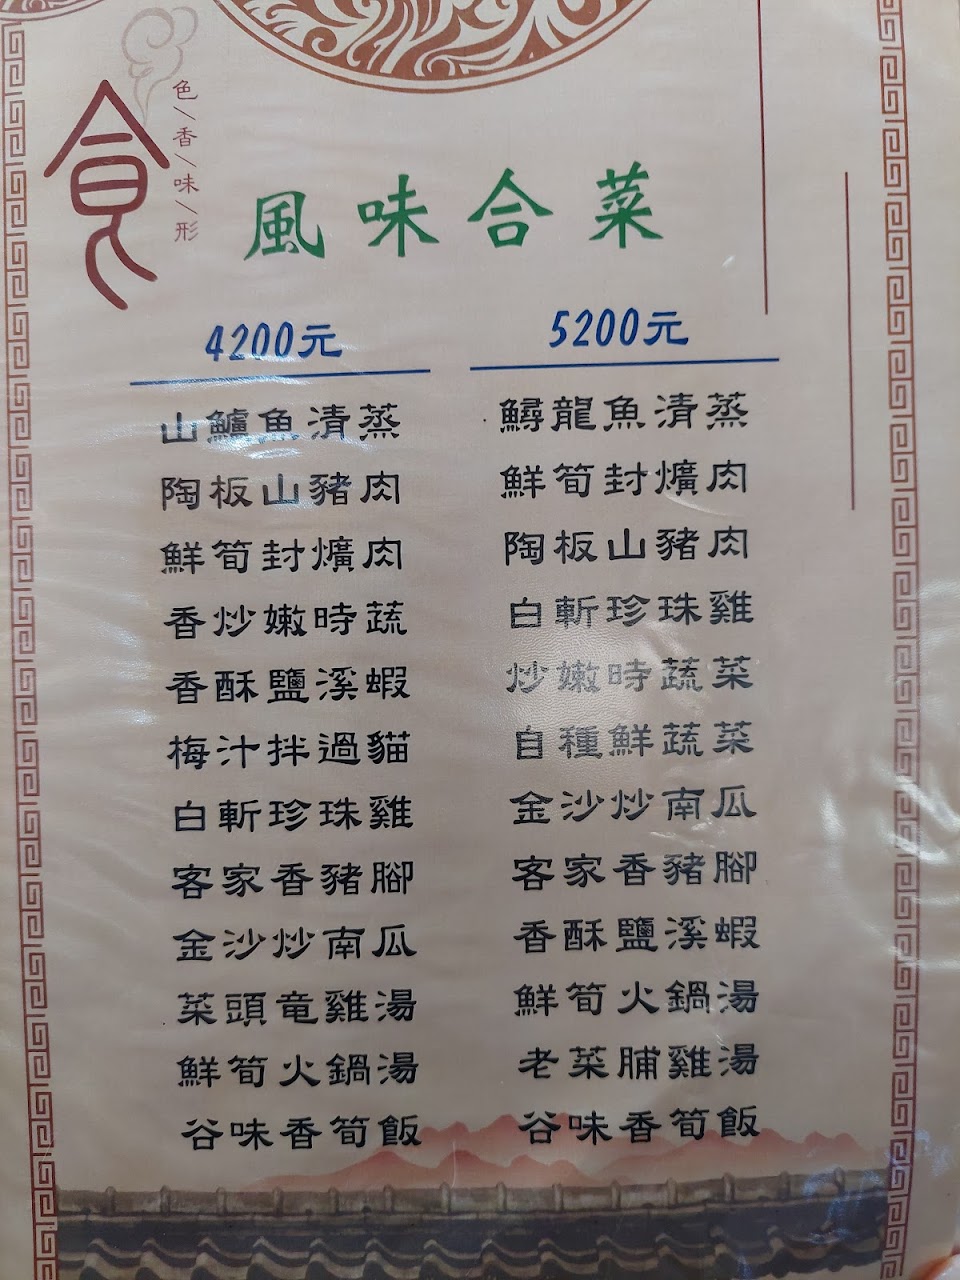 食
色\香\味\形
風味合菜
4200元
山鱸魚清蒸
陶板山豬肉
鮮筍封爌肉
香炒嫩時蔬
香酥鹽溪蝦
梅汁拌過貓
白斬珍珠雞
客家香豬腳
金沙炒南瓜
菜頭竜雞湯
鮮筍火鍋湯
谷味香筍飯
5200元
鱘龍魚清蒸
鮮筍封爌肉
陶板山豬肉
白斬珍珠雞
炒嫩時蔬菜
自種鮮蔬菜
金沙炒南瓜
客家香豬腳
香酥鹽溪蝦
鮮筍火鍋湯
老菜脯雞湯
谷味香筍飯